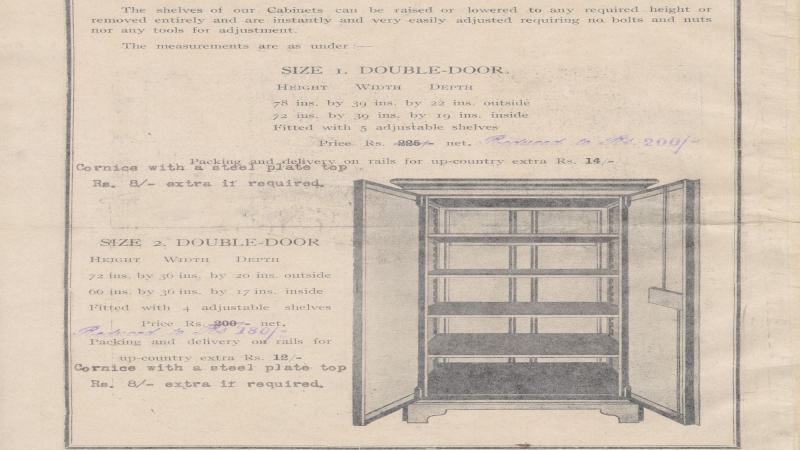 The shelves of our Cabinets can be raised or lowered to any required height or
removed entirely and are instantly and very easily adjusted requiring no bolts and nuts
nor any tools for adjustment.
The measurements are as under :—
SIZE 1. DOUBLE-DOOR.
HEIGHT WIDTH DEPTH
78 ins. by 39 ins. by 22 ins. outside
72 ins. by 39 ins. by 19 ins. inside
Fitted with 5 adjustable shelves
Price Rs. 225/- net. Reduced to Rs. 200/-
Packing and delivery on rails for up-country extra Rs. 14/-
Cornice with a steel plate top
Rs. 8/- extra if required.
SIZE 2. DOUBLE-DOOR
HEIGHT WIDTH DEPTH
72 ins. by 36 ins. by 20 ins. outside
66 ins. by 36 ins. by 17 ins. inside
Fitted with 4 adjustable shelves
Price Rs. 200/- net.
Reduced to Rs 180/-
Packing and delivery on rails for
up-country extra Rs. 12/-
Cornice with a steel plate top
Rs. 8/- extra if required.